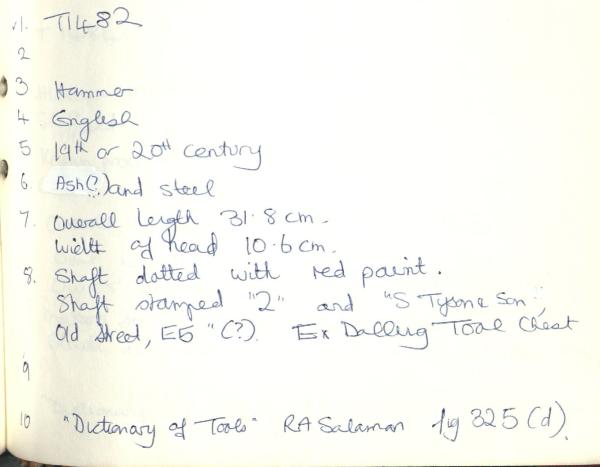 1. T1482
2
3 Hammer
4 English
5 19th or 20th century
6. Ash(?) and steel
7. Overall length 31.8 cm.
Width of head 10.6 cm.
8. Shaft dotted with red paint.
Shaft stamped "2" and "S Tyson & Son,
Old Street, E5" (?). Ex Dalling Tool Chest
9
10 "Dictionary of Tools" RA Salaman fig 325 (d).